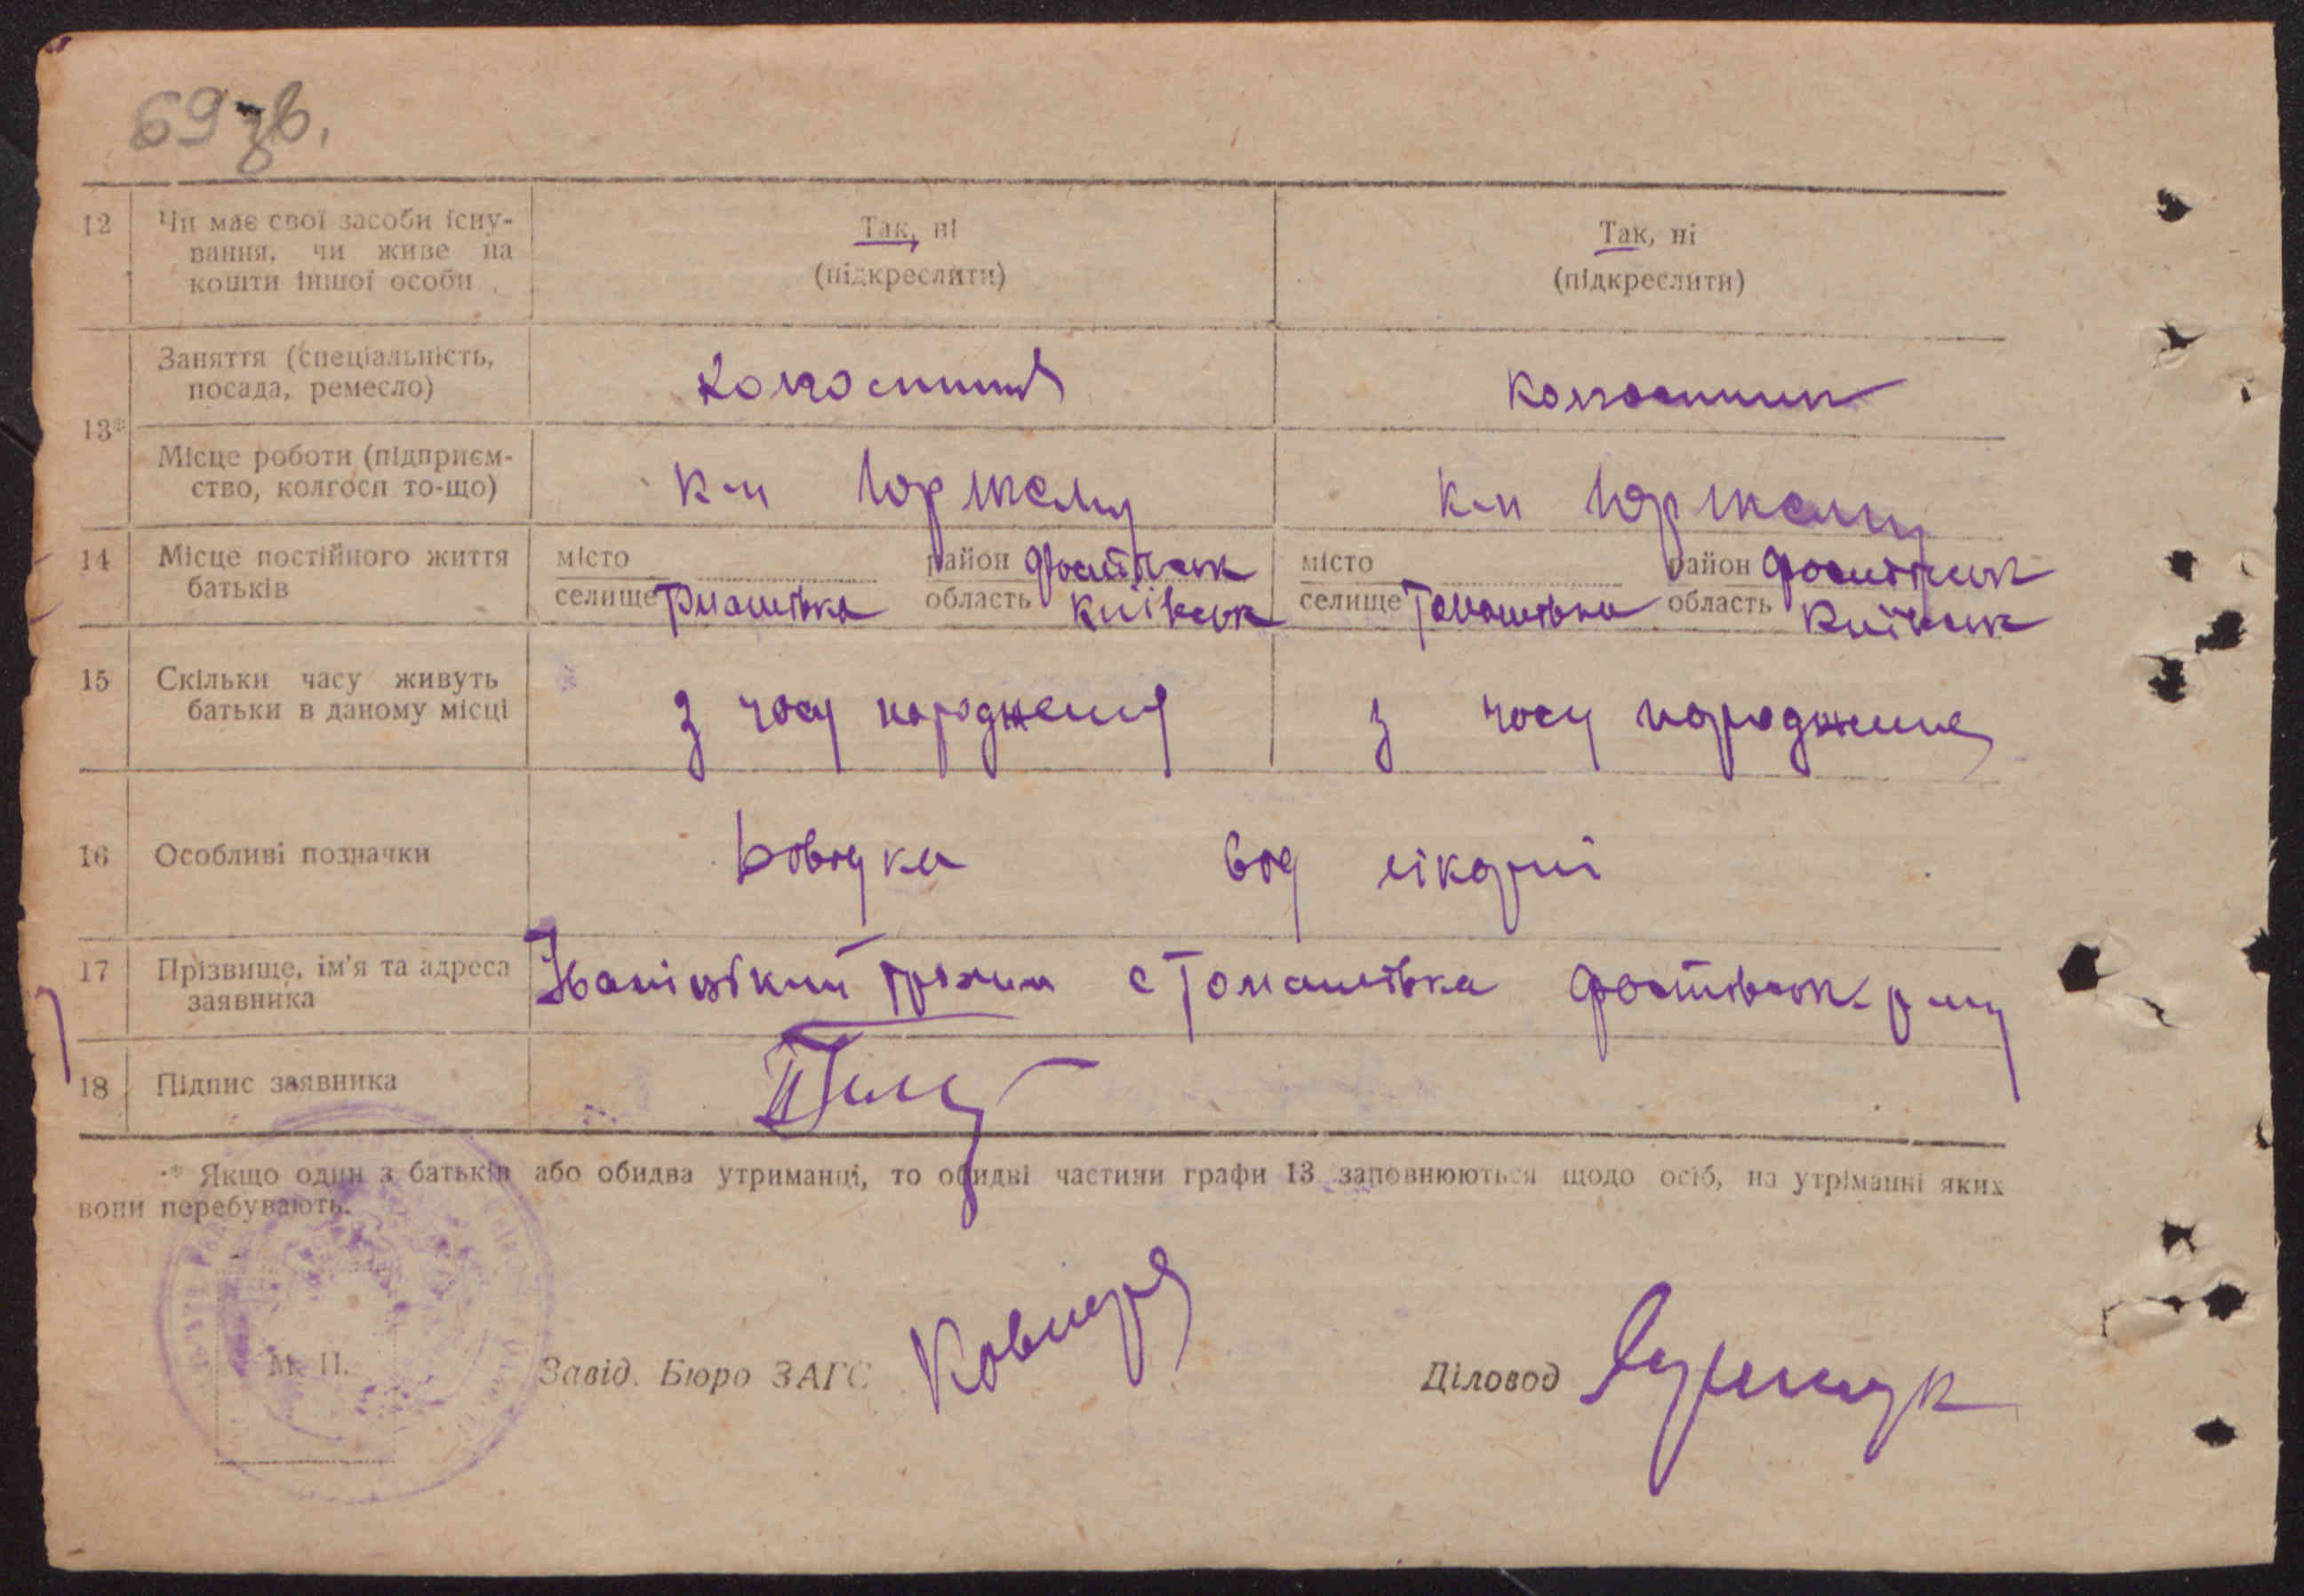 69 зв.
12 Чи має свої засоби існу-
вання, чи живе на
кошти іншої особи
Так, ні
(підкреслити)
Так, ні
(підкреслити)
13*
Заняття (спеціальність,
посада, ремесло)
Колгоспниця
Колгоспник
Місце роботи (підприєм-
ство, колгосп то-що)
к-п
к-п
14 Місце постійного життя
батьків
місто район Фастівськ
селище Томашівка область Київськ
місто район Фастівськ
селище Томашівка область Київськ
15 Скільки часу живуть
батьки в даному місці
з часу народження
з часу народження
16 Особливі позначки
Довідка від лікарні
17 Прізвище, ім'я та адреса
заявника
с Томашівка Фастівськ. р-ну
18 Підпис заявника
* Якщо один з батьків або обидва утриманці, то обидві частини графи 13 заповнюються щодо осіб, на утріманні яких
вони перебувають.
М. П.
Завід. Бюро ЗАГС
Діловод